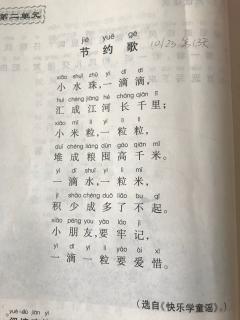 第二单元
jié yuē gē
节约歌
xiǎo shuǐ zhū yì dī dī
小水珠,一滴滴,
huì chéng jiāng hé cháng qiān lǐ
汇成江河长千里;
xiǎo mǐ lì yí lì lì
小米粒,一粒粒,
duī chéng liáng dùn gāo qiān mǐ
堆成粮囤高千米。
yì dī shuǐ yí lì mǐ
一滴水,一粒米,
jī shǎo chéng duō liǎo bu qǐ
积少成多了不起。
xiǎo péng yǒu yào láo jì
小朋友,要牢记,
yì dī yí lì yào ài xī
一滴一粒要爱惜。
(选自《快乐学童谣》)
yuè dú jiàn yì